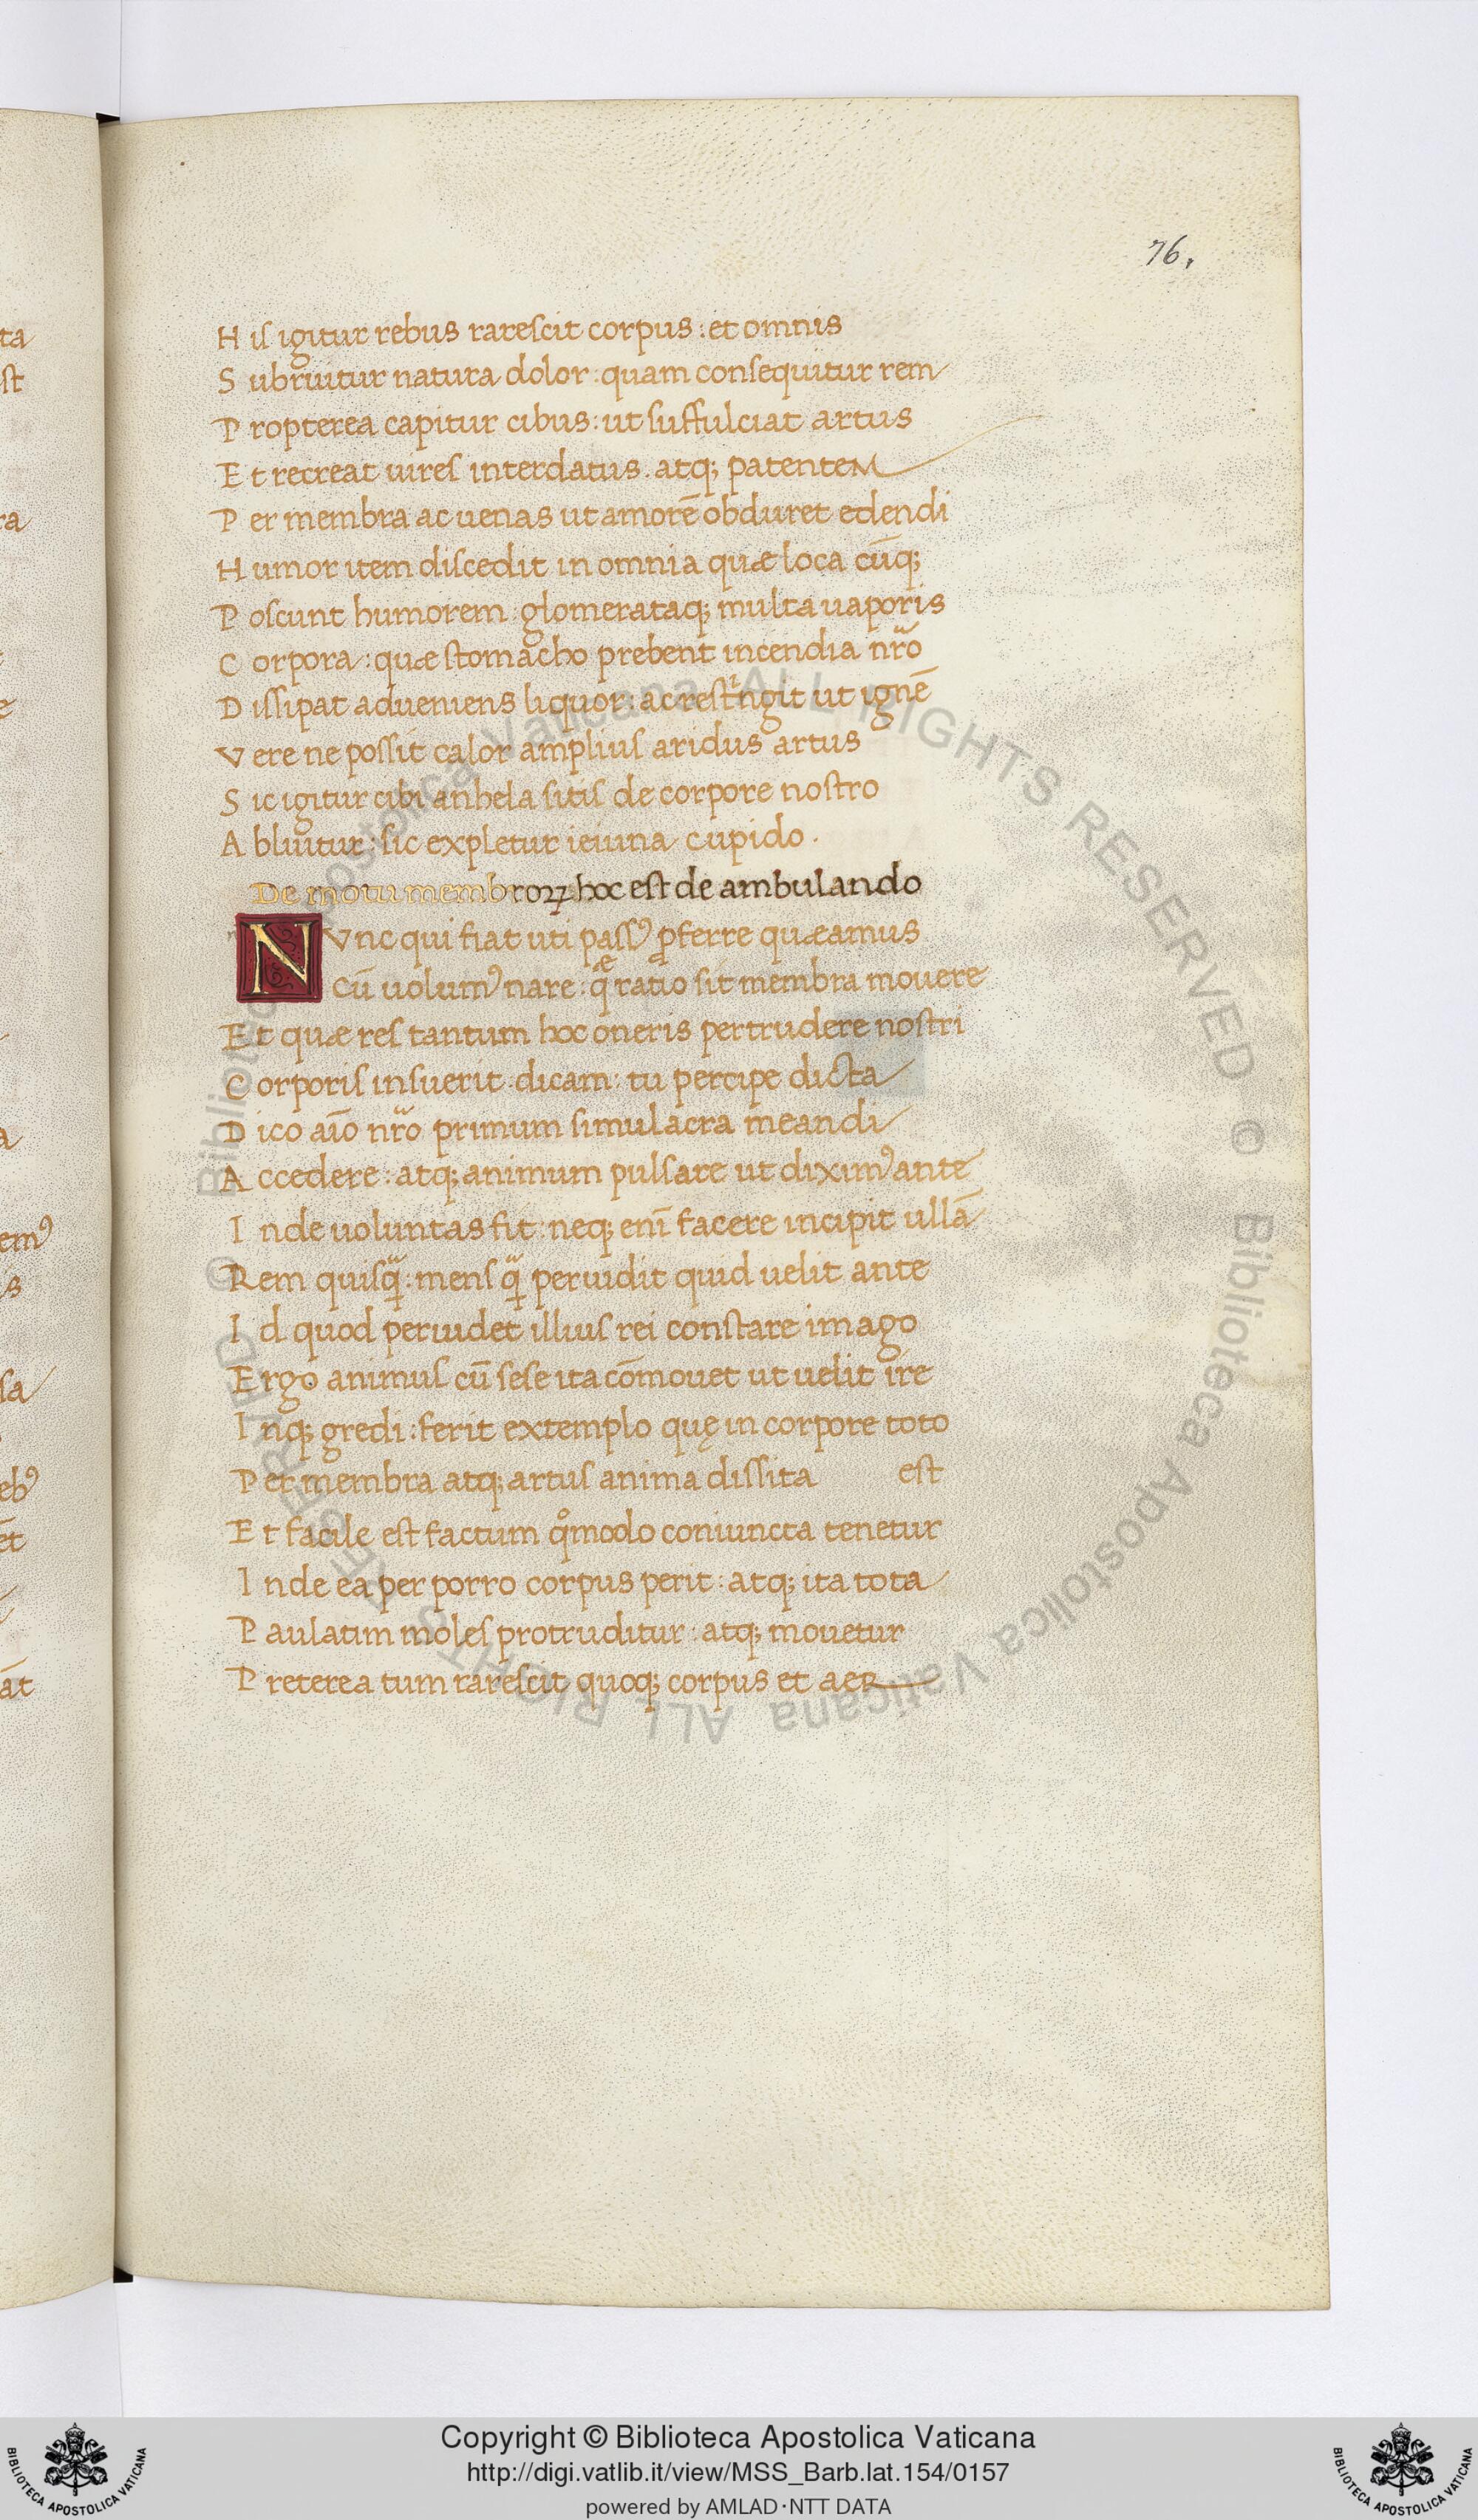 76.
H iſ igitur rebus rareſcit corpus : et omnis
S ubruitur natura dolor : quam conſequitur rem
P ropterea capitur cibus : ut ſuffulciat artus
E t recreat uireſ interdatus . atq; patenteM
P er membra ac uenas ut amorē obduret edendi
H umor item diſcedit in omnia quæ loca cūq;
P oſcunt humorem : glomerataq; multa uaporis
C orpora : quæ ſtomacho prebent incendia nr̄o
D iſſipat adueniens liquor : ac reſtingit ut ignē
V ere ne poſſit calor ampliuſ aridus artus
S ic igitur cibi anhela ſitiſ de corpore noſtro
A bluitur : ſic expletur ieiuna cupido .
De motu membroꝝ hoc eſt de ambulando
N Vnc qui fiat uti paſſꝰ ꝓferre quæamus
Cū uolumꝰ nare : q̄æ ratio ſit membra mouere
E t quæ reſ tantum hoc oneris pertrudere noſtri
C orporiſ inſuerit dicam : tu percipe dicta
D ico aīo nr̄o primum ſimulacra meandi
A ccedere : atq; animum pulſare ut diximꝰ ante
I nde uoluntas fit : neq; enī facere incipit ullā
Rem quiſꝗᷓ : menſ ꝗᷓ peruidit quid uelit ante
I d quod peruidet illiuſ rei conſtare imago
E rgo animuſ cū ſeſe ita cōmouet ut uelit ire
I nq; gredi : ferit extemplo quę in corpore toto
P er membra atq; artuſ anima diſſita eſt
E t facile eſt factum qͦmodo coniuncta tenetur
I nde ea per porro corpus perit : atq; ita tota
P aulatim moleſ protruditur : atq; mouetur
P reterea tum rareſcit quoq; corpus et aeR
Copyright © Biblioteca Apostolica Vaticana
http://digi.vatlib.it/view/MSS_Barb.lat.154/0157
powered by AMLAD·NTT DATA
BIBLIOTECA APOSTOLICA VATICANA
BIBLIOTECA APOSTOLICA VATICANA
© Biblioteca Apostolica Vaticana ALL RIGHTS RESERVED © Biblioteca Apostolica Vaticana ALL RIGHTS RESERVED